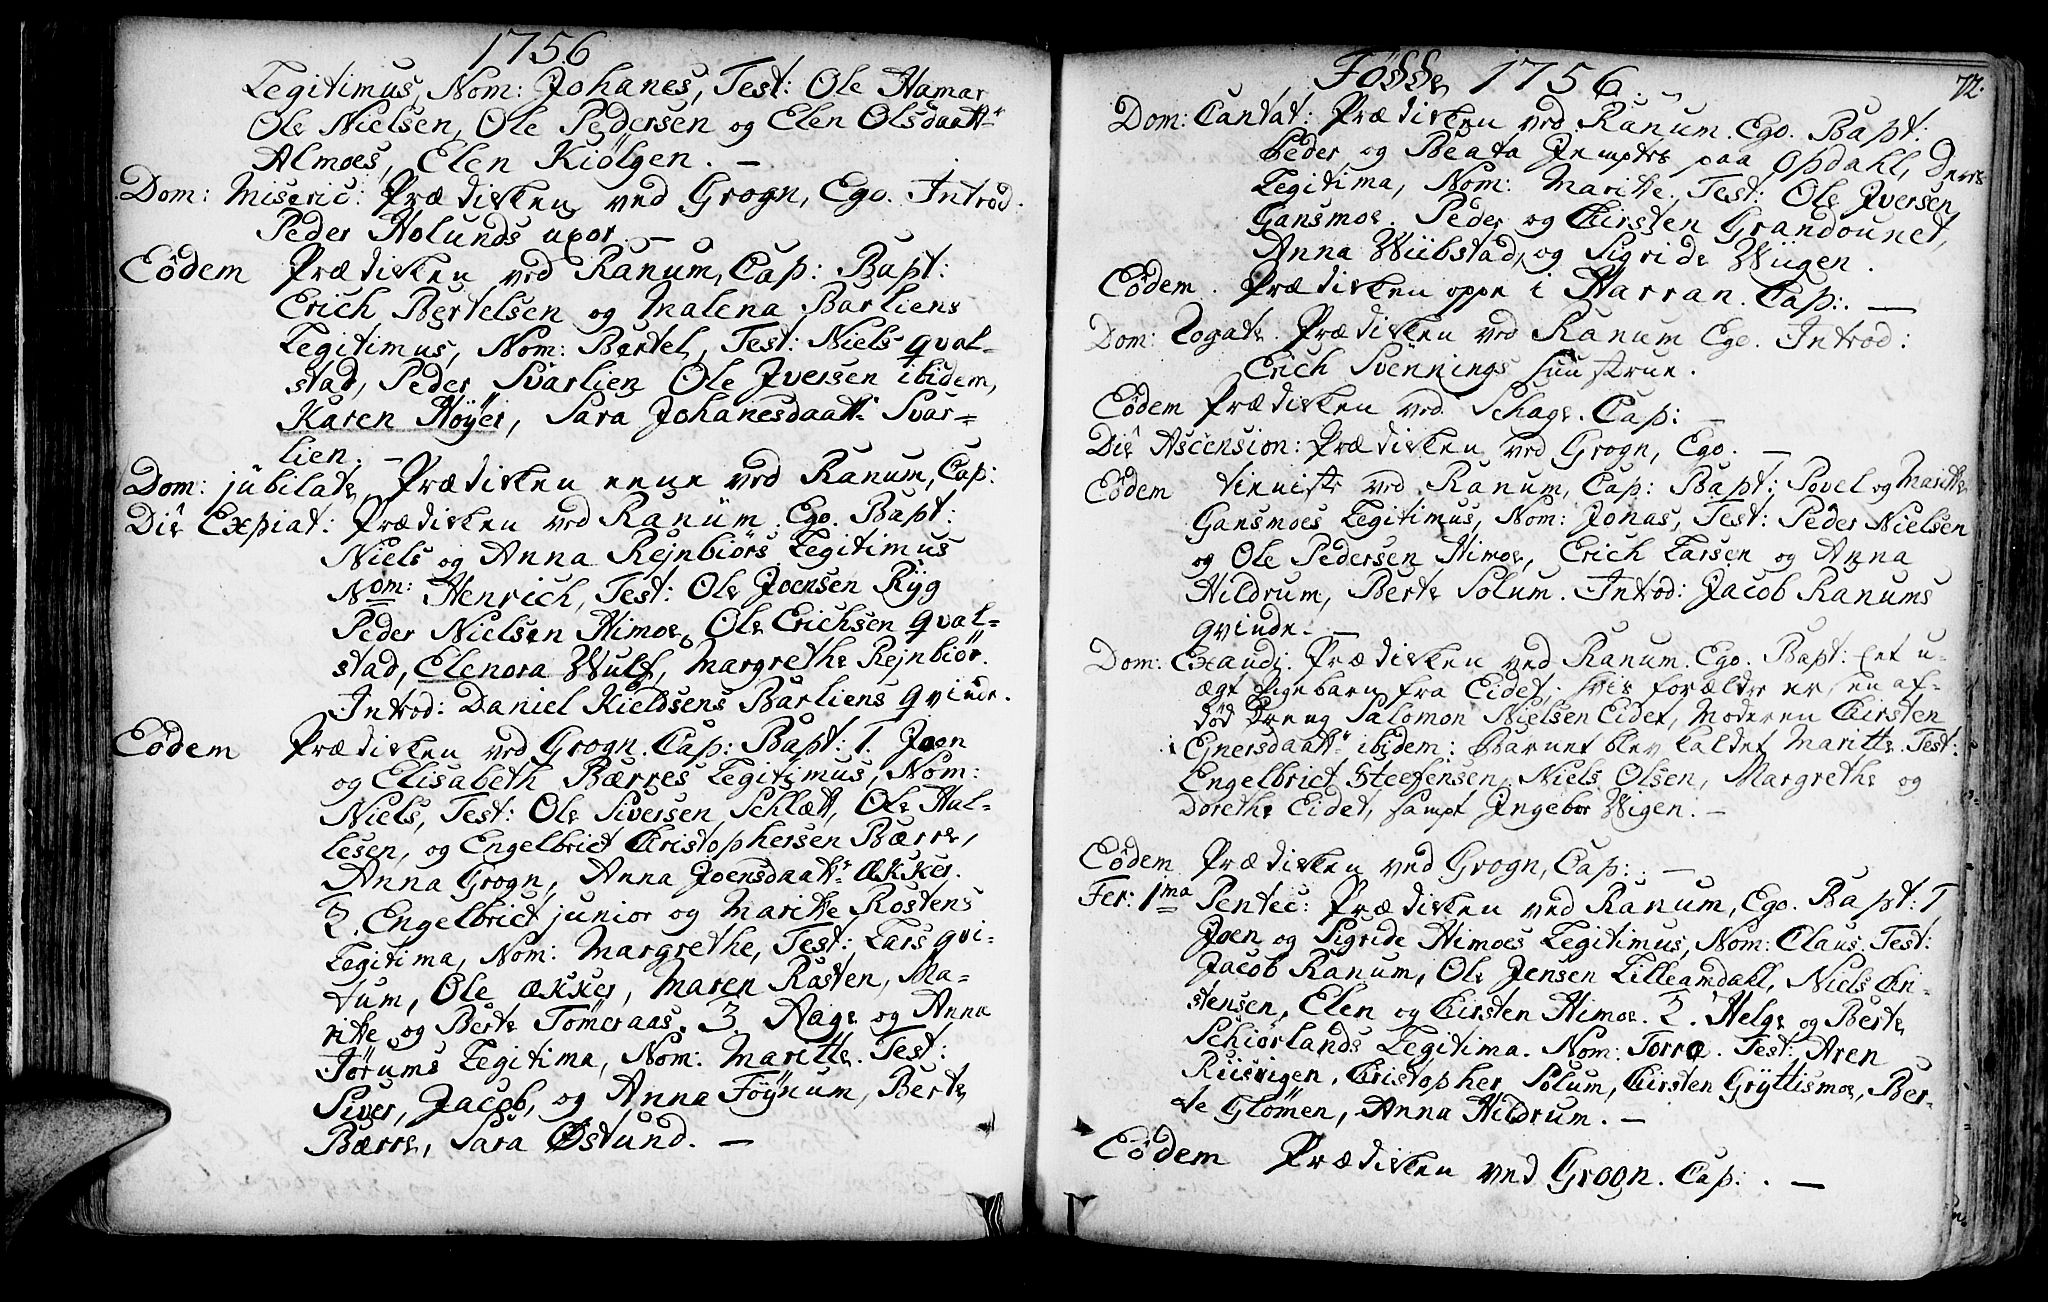 1756
Legitimus, Nom: Johanes, Test: Ole Hamar
Ole Nielsen, Ole Pedersen og Elen Olsdaatt:
Almoes, Elen Kiølgen. —
Dom: Miseric: Prædiken ved Grogn, Ego. Introd:
Peder Holunds uxor —
Eôdem Prædiken ved Ranum, Cap: Bapt:
Erich Bertelsen og Malena Barliens
Legitimus, Nom: Bertel, Test: Niels Qval-
stad, Peder Svarlien Ole Jversen ibidem,
Karen Høyer, Sara Johanesdaatt: Svar-
lien. —
Dom: jubilate, Prædiken neue ved Ranum, Cap:
Die Expiat: Prædiken ved Ranum. Ego. Bapt:
Niels og Anna Rejnbiørs Legitimus
Nom: Henrich, Test: Ole Joensen Ryg
Peder Nielsen Himoe, Ole Erichsen Qval-
stad, Elenora Wulf, Margrethe Rejnbiør.
Introd: Daniel Kieldsens Barliens Qvinde.
Eôdem Prædiken ved Grogn. Cap: Bapt: 1. Joen
og Elisabeth Bærres Legitimus, Nom:
Niels, Test: Ole Siversen Schlætt, Ole Hal-
lesen, og Engelbrict Christophersen Bærre,
Anna Grogn, Anna Joensdaatt: Ækker.
2. Engelbrict junior og Maritte Rostens
Legitima, Nom: Margrethe, Test: Lars Qvi-
tum, Ole Ækker, Maren Rosten, Ma-
ritte og Berte Tømeraas. 3. Aage og Anna
Jørums Legitima, Nom: Maritte. Test:
Siver, Jacob, og Anna Føynum, Berte
Bærre, Sara Østund. —
Fødde 1756.
72.
Dom: Cantat: Prædiken ved Ranum. Ego. Bapt:
Peder og Beata Jempter paa Opdahl, Deres
Legitima, Nom: Maritte, Test: Ole Jversen
Gansmoe. Peder og Chirsten Grandounet,
Anna Wiibstad, og Sigride Wiigen.
Eôdem. Prædiken oppe i Harran. Cap: —
Dom: Rogate. Prædiken ved Ranum Ego. Introd:
Erich Svennings huustrue.
Eôdem Prædiken ved Schage. Cap: —
Die Ascension: Prædiken ved Grogn, Ego. —
Eôdem tieniste ved Ranum, Cap: Bapt: Povel og Maritte
Gansmoes Legitimus, Nom: Jonas, Test: Peder Nielsen
og Ole Pedersen Himoe, Erich Larsen og Anna
Hildrum, Berte Solum. Introd: Jacob Ranums
qvinde. —
Dom: Exaudi. Prædiken ved Ranum. Ego. Bapt: eet u-
ægt Pigebarn fra Eidet, hvis forældre er, en af-
død Dreng Salomon Nielsen Eidet, Moderen Chirsten
Ejnersdaatt: ibidem: Barnet blev kaldet Maritte. Test:
Engelbrict Steefensen, Niels Olsen, Margrethe og
Dorethe Eidet, sampt Jngebor Wigen. —
Eôdem Prædiken ved Grogn, Cap: —
Fer: 1ma Pentec: Prædiken ved Ranum, Ego. Bapt: 1,
Joen og Sigride Himoes Legitimus, Nom: Claus. Test:
Jacob Ranum, Ole Jensen Lilleamdahl, Niels Chri-
stensen, Elen og Chirsten Himoe. 2. Helge og Berte
Schiørlands Legitima. Nom: Torra. Test: Aren
Ruisvigen, Christopher Solum, Chirsten Gryttismoe, Ber-
te Glømen, Anna Hildrum. —
Eôdem Prædiken ved Grogn. Cap: . —